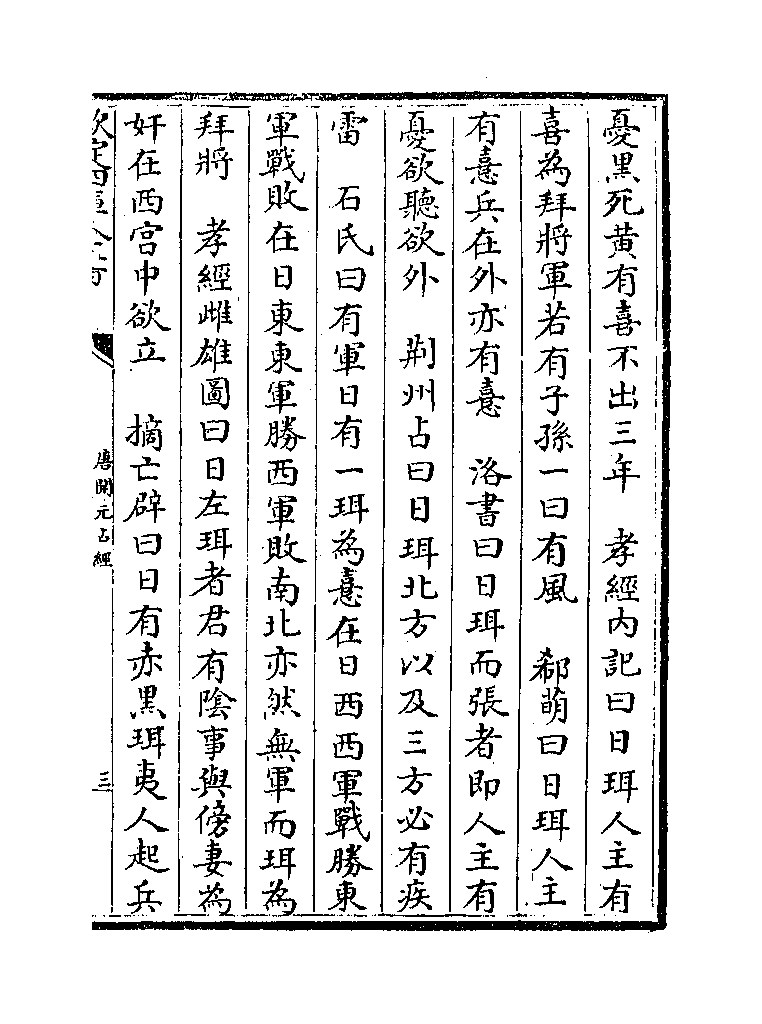 憂黒死黄有喜不出三年　孝經内記曰日珥人主有
喜為拜將軍若有子孫一曰有風　郗萌曰日珥人主
有憙兵在外亦有憙　洛書曰日珥而張者即人主有
憂欲聽欲外　荆州占曰日珥北方以及三方必有疾
雷　石氏曰有軍日有一珥為憙在日西西軍戰勝東
軍戰敗在日東東軍勝西軍敗南北亦然無軍而珥為
拜將　孝經雌雄圖曰日左珥者君有陰事與傍妻為
奸在西宫中欲立　摘亡辟曰日有赤黒珥夷人起兵
唐開元占經
三